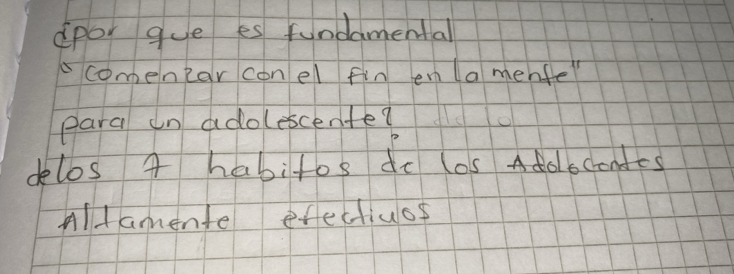 ¿por que es fundamental
"comenzar con el fin en la mente"
para un adolescente?
delos 7 habitos de los Adolecentes
Altamente efectivos